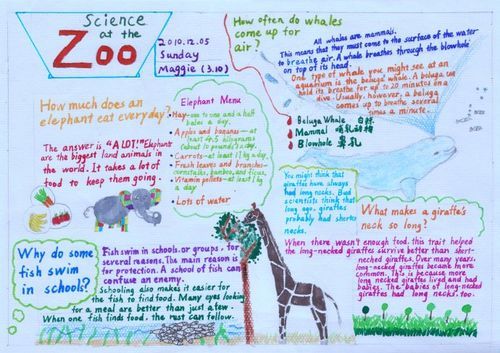 Science
at the
Zoo
2010.12.05
Sunday
Maggie (3.10)
How often do whales
come up for
air?
All whales are mammals.
This means that they must come to the surface of the water
to breathe air. A whale breathes through the blowhole
on top of its head.
One type of whale you might see at an
aquarium is the beluga whale. A beluga can
hold its breath for up to 20 minutes on a
dive. Usually, however, a beluga
comes up to breathe several
times a minute.
Beluga Whale 白鲸
Mammal 哺乳动物
Blowhole 鼻孔
How much does an
elephant eat everyday?
The answer is "A LOT!" Elephants
are the biggest land animals in
the world. It takes a lot of
food to keep them going.
Elephant Menu
Hay—one to one and a half
bales a day.
Apples and bananas—at
least 4.5 kilograms
(about 10 pounds) a day.
Carrots—at least 1 kg a day.
Fresh leaves and branches—
cornstalks, bamboo, and ficus.
Vitamin pellets—at least 1 kg
a day
Lots of water
You might think that
giraffes have always
had long necks. But
scientists think that
long ago, giraffes
probably had shorter
necks.
What makes a giraffe's
neck so long?
When there wasn't enough food, this trait helped
the long-necked giraffes survive better than short-
necked giraffes. Over many years,
long-necked giraffes became more
common. This is because more
long necked giraffes lived and had
babies. The babies of long-necked
giraffes had long necks, too.
Why do some
fish swim
in schools?
Fish swim in schools, or groups, for
several reasons. The main reason is
for protection. A school of fish can
confuse an enemy.
Schooling also makes it easier for
the fish to find food. Many eyes looking
for a meal are better than just a few.
When one fish finds food, the rest can follow.